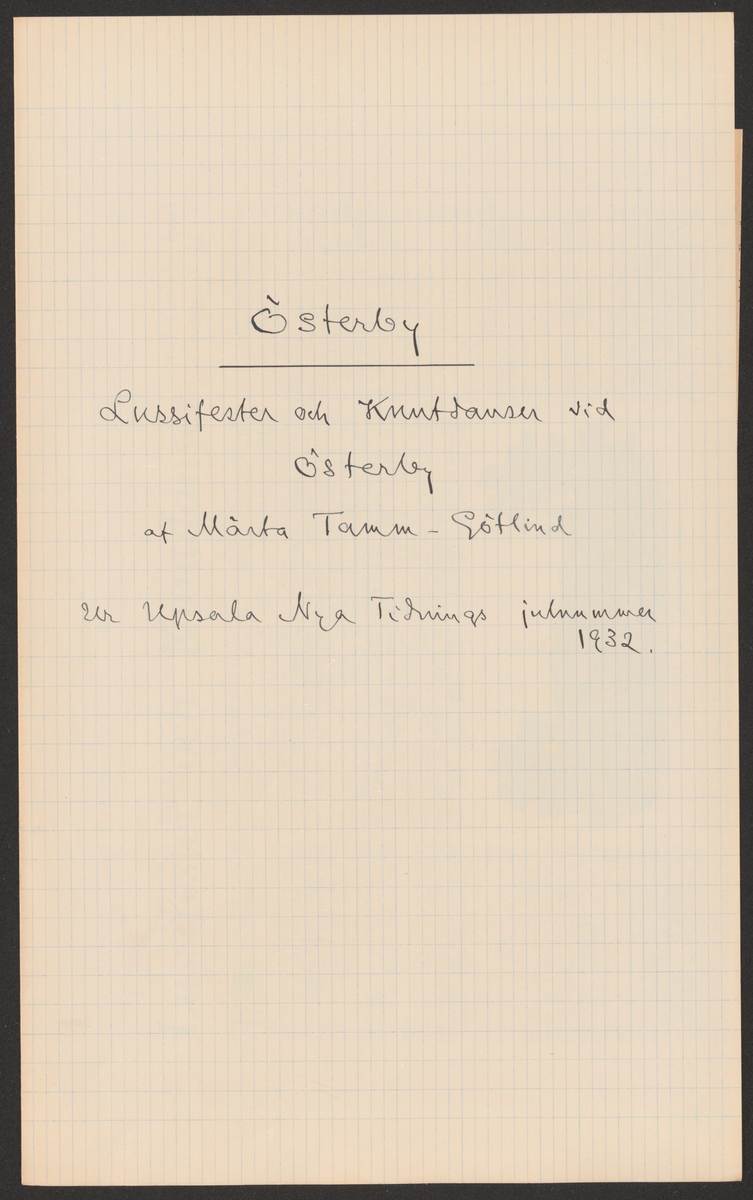 Österby
Lussifester och Knutdanser vid
Österby
af Märta Tamm-Götlind
Ur Upsala Nya Tidnings julnummer
1932.